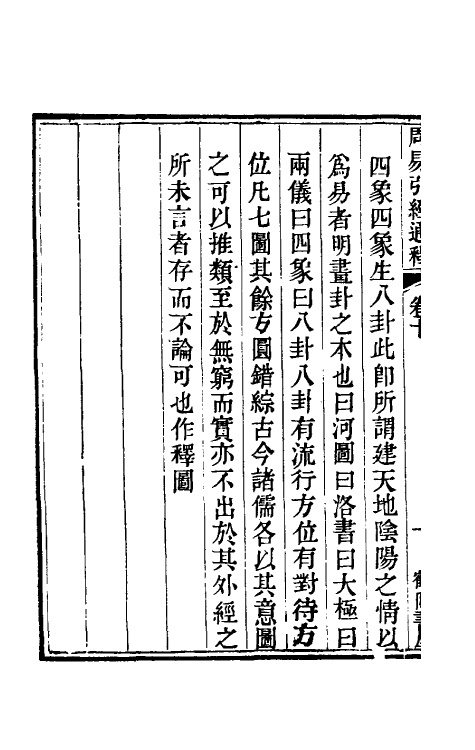 周易引經通釋
卷十
一
四象四象生八卦此卽所謂建天地陰陽之情以
爲易者明畫卦之本也曰河圖曰洛書曰大極曰
兩儀曰四象曰八卦八卦有流行方位有對待方
位凡七圖其餘方圓錯綜古今諸儒各以其意圖
之可以推類至於無窮而實亦不出於其外經之
所未言者存而不論可也作釋圖